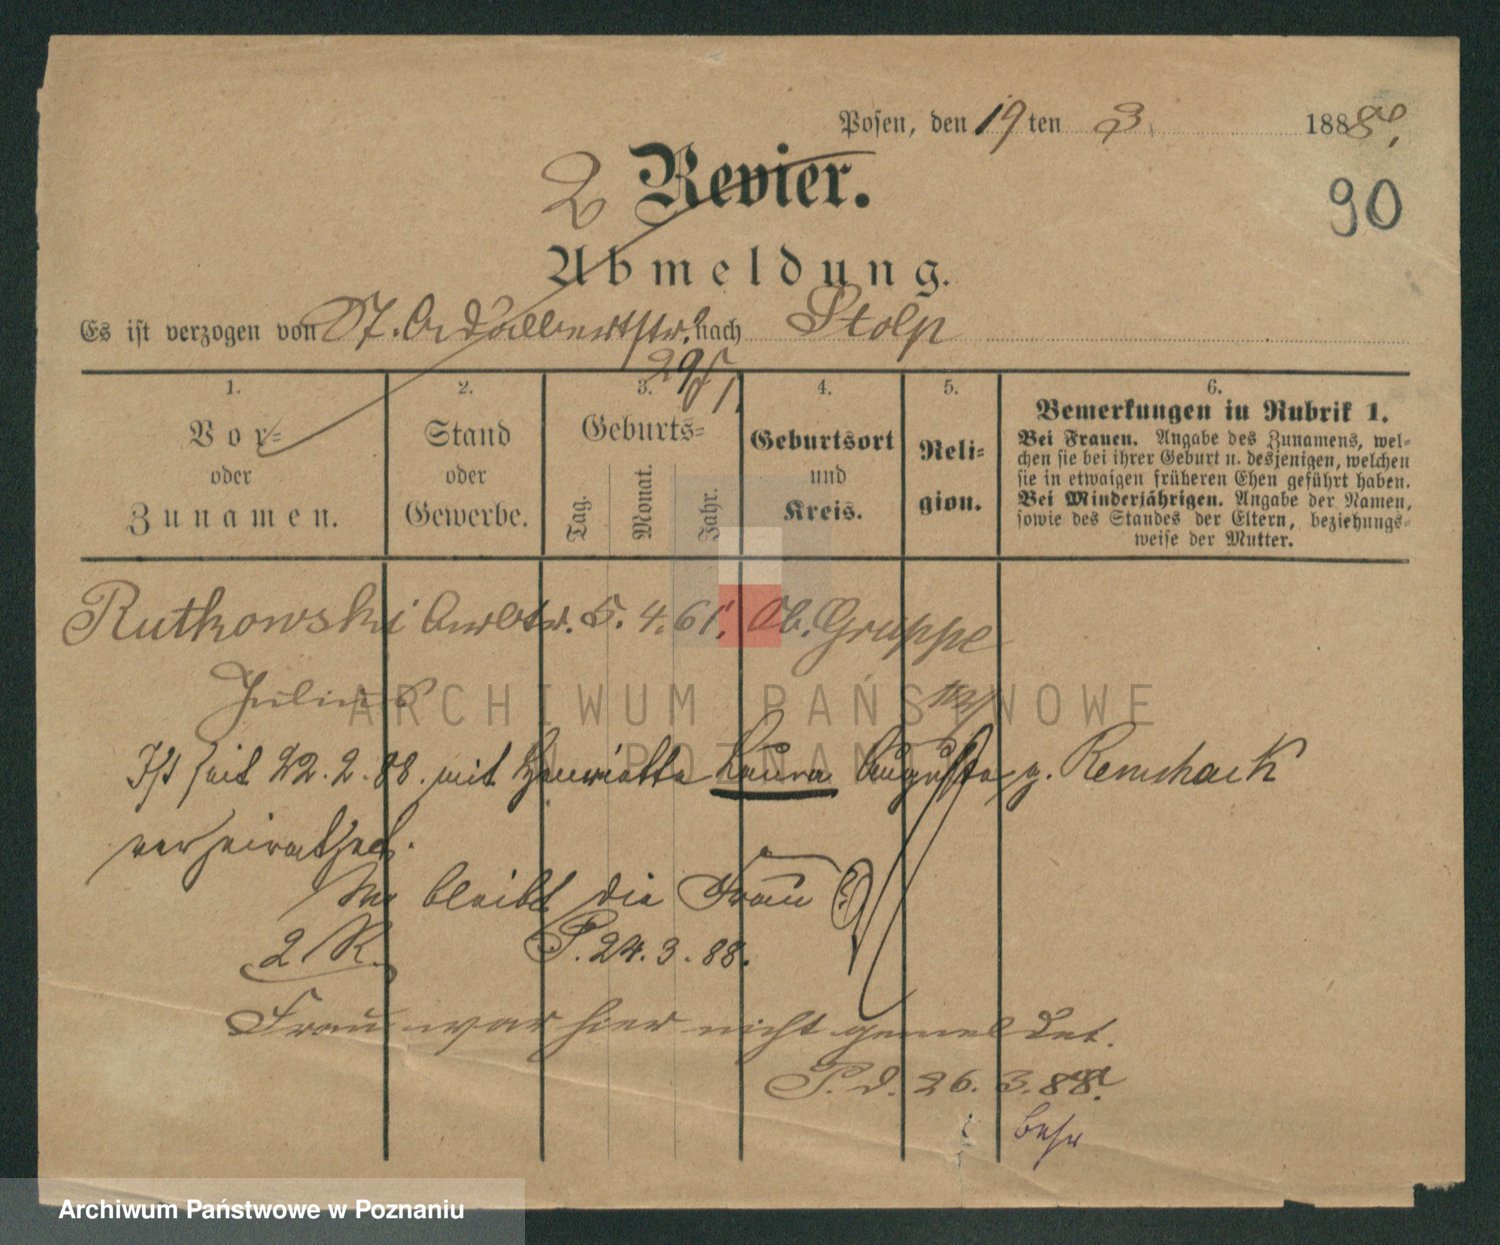 Posen, den 19ten 3. 1888.
2 Revier.
90
Abmeldung.
Es ist verzogen von St. Adalbertstr. nach Stolp
29/
1. 2. 3. 4. 5. 6.
Vor- oder Zunamen.
Stand oder Gewerbe.
Geburts-
Tag. Monat. Jahr.
Geburtsort und Kreis.
Reli-
gion.
Bemerkungen in Rubrik 1.
Bei Frauen. Angabe des Zunamens, wel-
chen sie bei ihrer Geburt u. desjenigen, welchen
sie in etwaigen früheren Ehen geführt haben.
Bei Minderjährigen. Angabe der Namen,
sowie des Standes der Eltern, beziehungs-
weise der Mutter.
Rutkowski Arbtr. 5. 4. 61. Ob. Gruppe
Julius
Ist seit 22.2.88. mit Henriette Laura Auguste g. Remshack
verheirathed.
Wo bleibt die Frau
2 R. P. 24.3.88.
Frau war hier nicht gemeldet.
P. d. 26.3.88.
ARCHIWUM PAŃSTWOWE
W POZNANIU
Archiwum Państwowe w Poznaniu